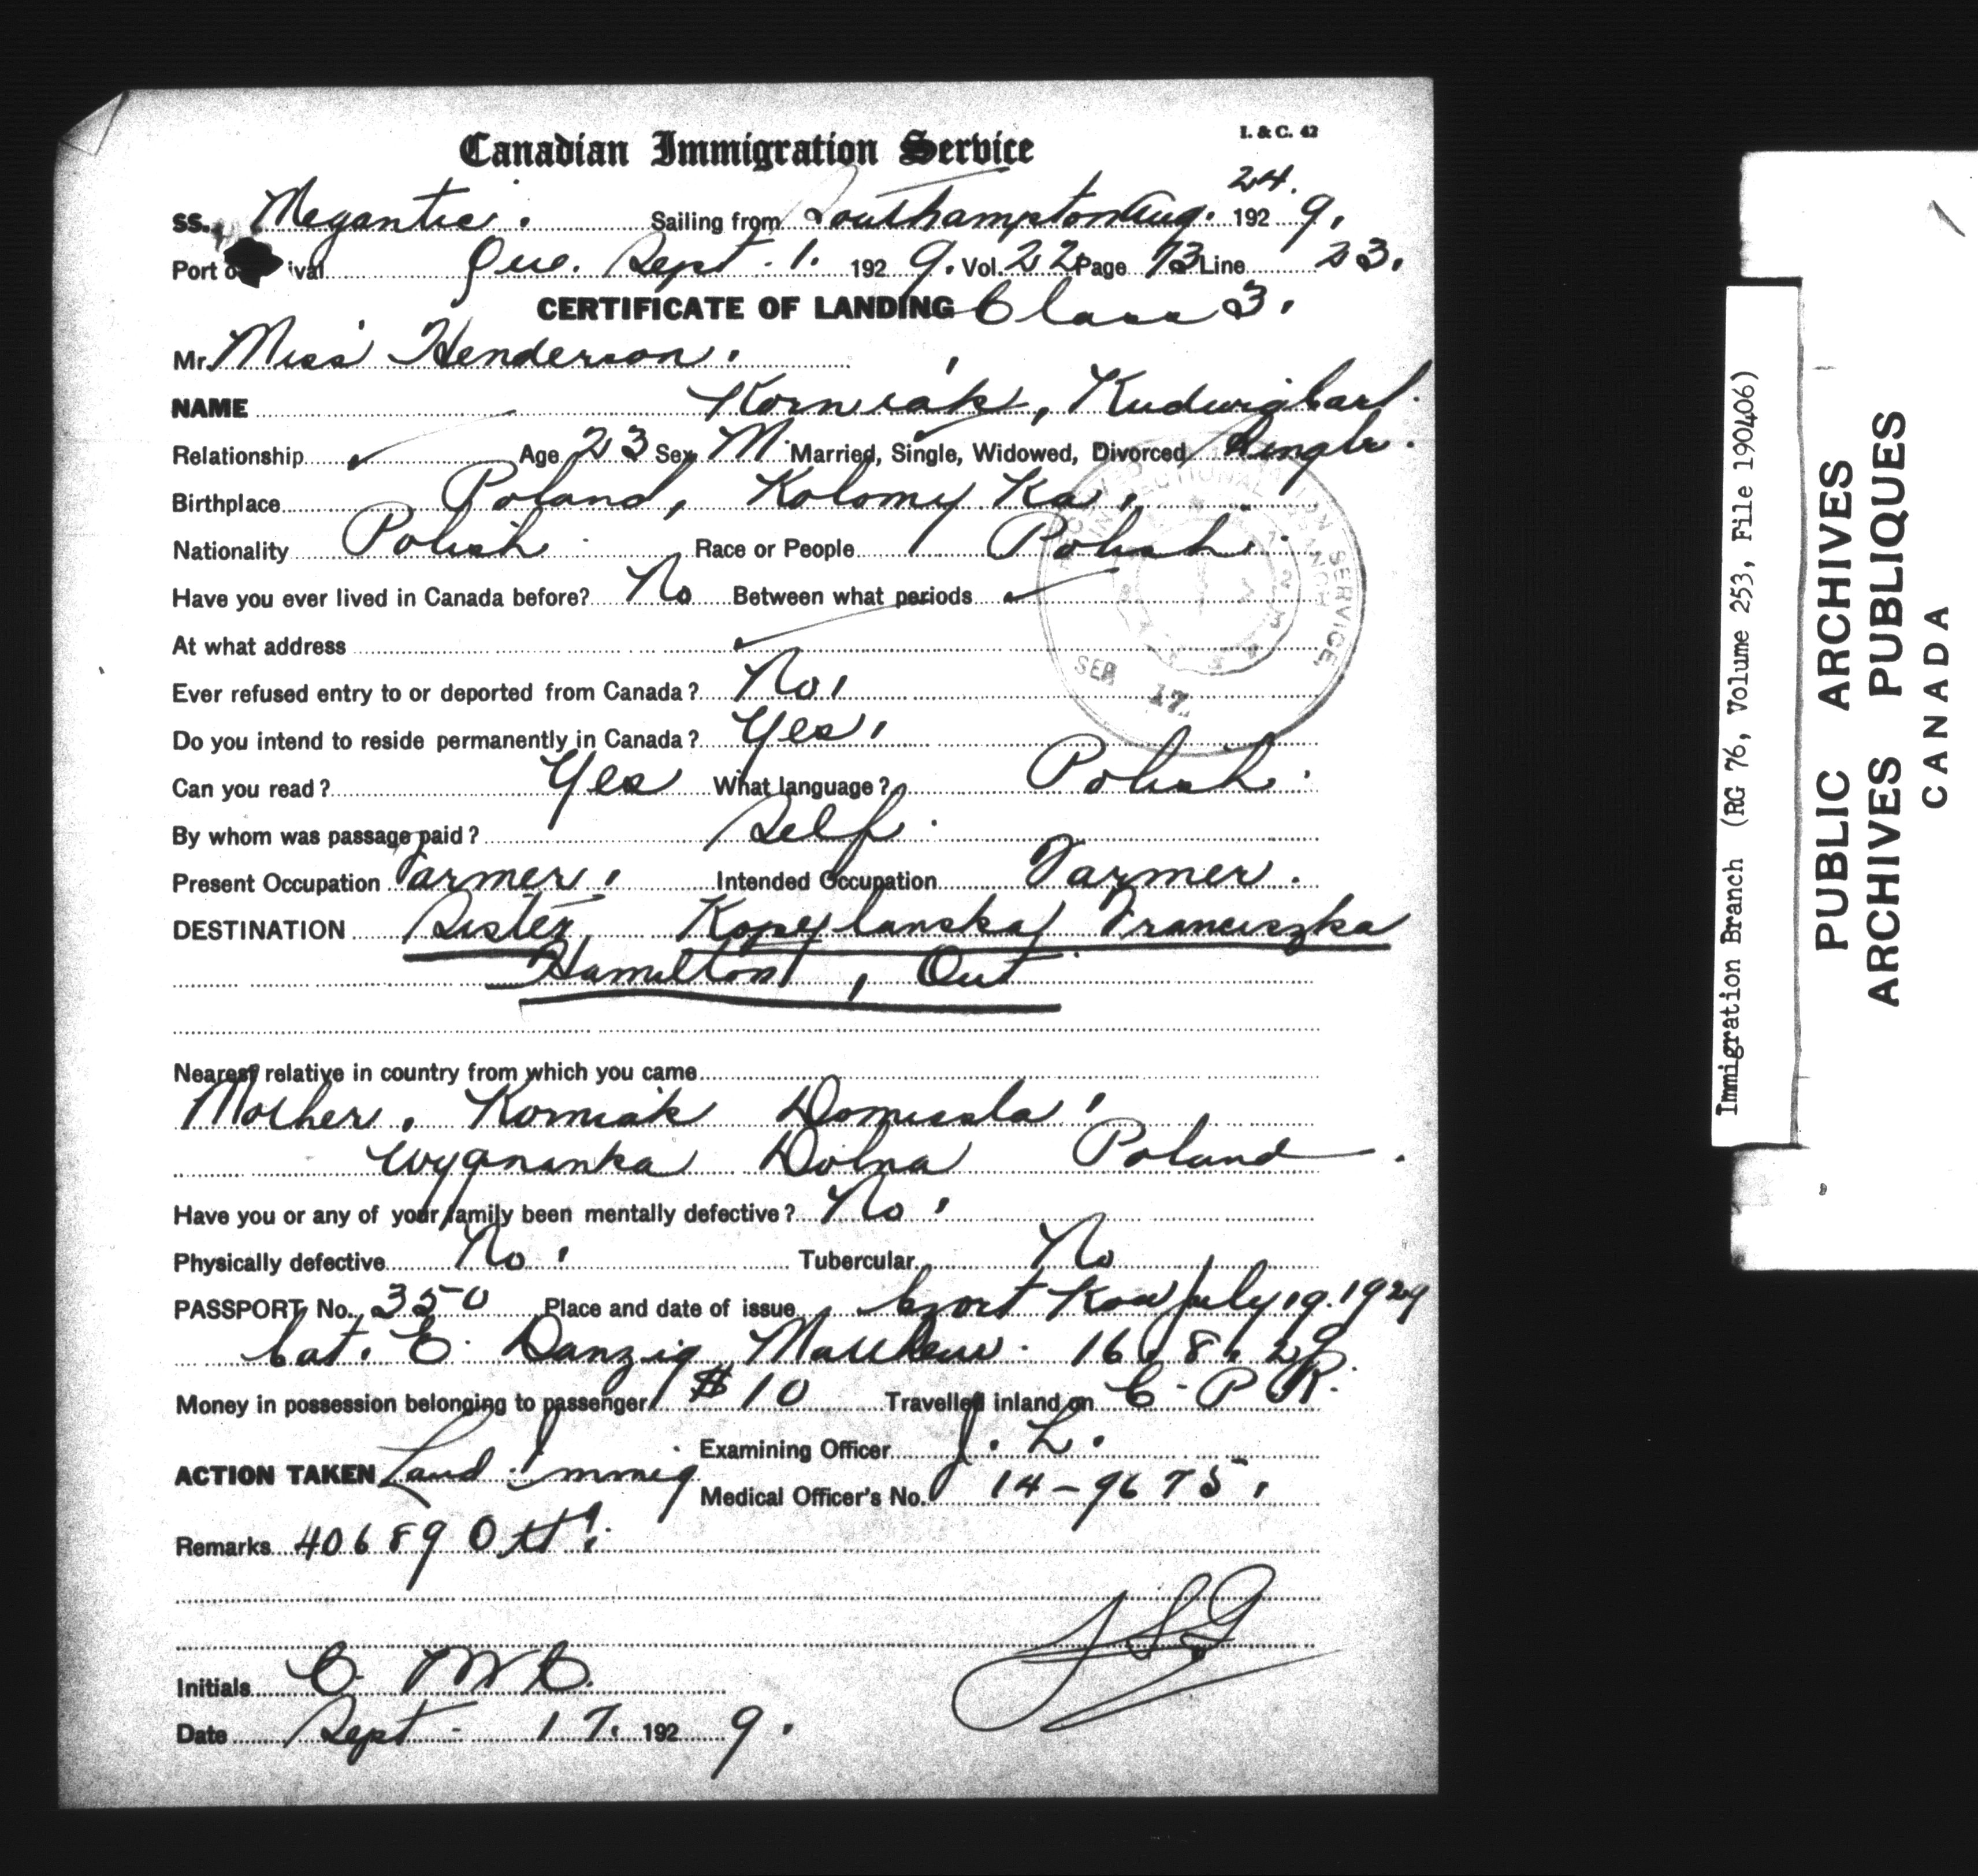 I. & C. 42
Canadian Immigration Service
24.
SS. Megantic. Sailing from Southampton Aug. 192 9.
Port o ival Que. Sept. 1. 192 9. Vol. 22 Page 73 Line 23.
CERTIFICATE OF LANDING Class 3.
Mr. Miss Henderson.
NAME Korniak,
Relationship Age 23 Sex M. Married, Single, Widowed, Divorced Single.
Birthplace Poland, Kolomy Ka.
Nationality Polish Race or People Polish.
Have you ever lived in Canada before? No Between what periods
At what address
Ever refused entry to or deported from Canada? No.
SEP 17.
Do you intend to reside permanently in Canada? Yes.
Can you read? Yes What language? Polish.
By whom was passage paid? Self.
Present Occupation Farmer. Intended Occupation Farmer.
DESTINATION Sister Kopeylanska Franciszka
Hamilton, Ont
Nearest relative in country from which you came
Mother. Korniak
Wygnanka Dolna Poland.
Have you or any of your family been mentally defective? No.
Physically defective No. Tubercular. No
PASSPORT No. 350 Place and date of issue Czort Kow July 19. 1929
Cat. C. Danzig 16. 8. 29.
Money in possession belonging to passenger $10 Travelled inland on C. P. R.
Examining Officer J. L.
ACTION TAKEN Land Immig
Medical Officer's No. 14-9675.
Remarks 40689 Ott.
Initials C M C.
Date Sept - 17. 192 9.
Immigration Branch (RG 76, Volume 253, File 190406)
PUBLIC ARCHIVES
ARCHIVES PUBLIQUES
CANADA